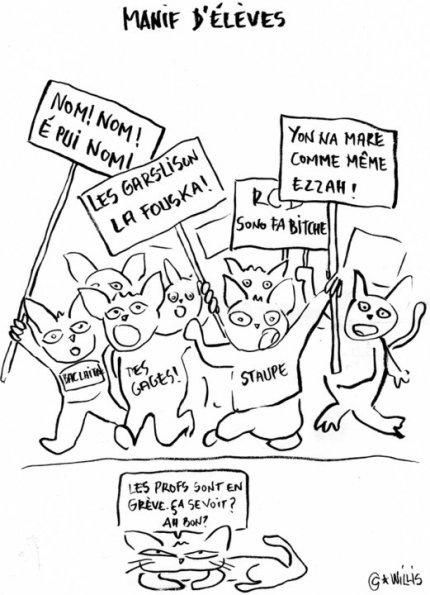 MANIF D'ÉLÈVES
NOM! NOM!
É PUI NOM!
LES GARSLISON
LA FOUSKA!
SONG FA BITCHE
YON NA MARE
COMME MÊME
EZZAH!
DES
GAGES!
STAUPE
LES PROFS SONT EN
GRÈVE. ÇA SE VOIT?
AH BON?
@*WILLIS